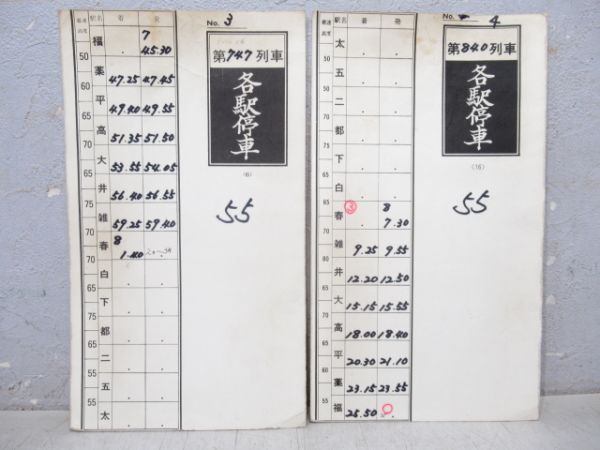 最速高度 駅名 着 発
福 7 45.30
50
薬 47.25 47.45
55
平 49.40 49.55
60
高 51.35 51.50
65
大 53.55 54.05
65
井 56.40 56.55
65
雑 59.25 59.40
70
春 8 1.40
70
白
65
下
65
都
55
二
55
五
55
太
No. 3
第747列車
各駅停車
(6)
55
最速高度 駅名 着 発
太
55
五
55
二
55
都
65
下
65
白
65
春 8 7.30
70
雑 9.25 9.55
70
井 12.20 12.50
65
大 15.15 15.55
65
高 18.00 18.40
60
平 20.30 21.10
55
薬 23.15 23.55
50
福 25.50
No. 4
第840列車
各駅停車
(16)
55